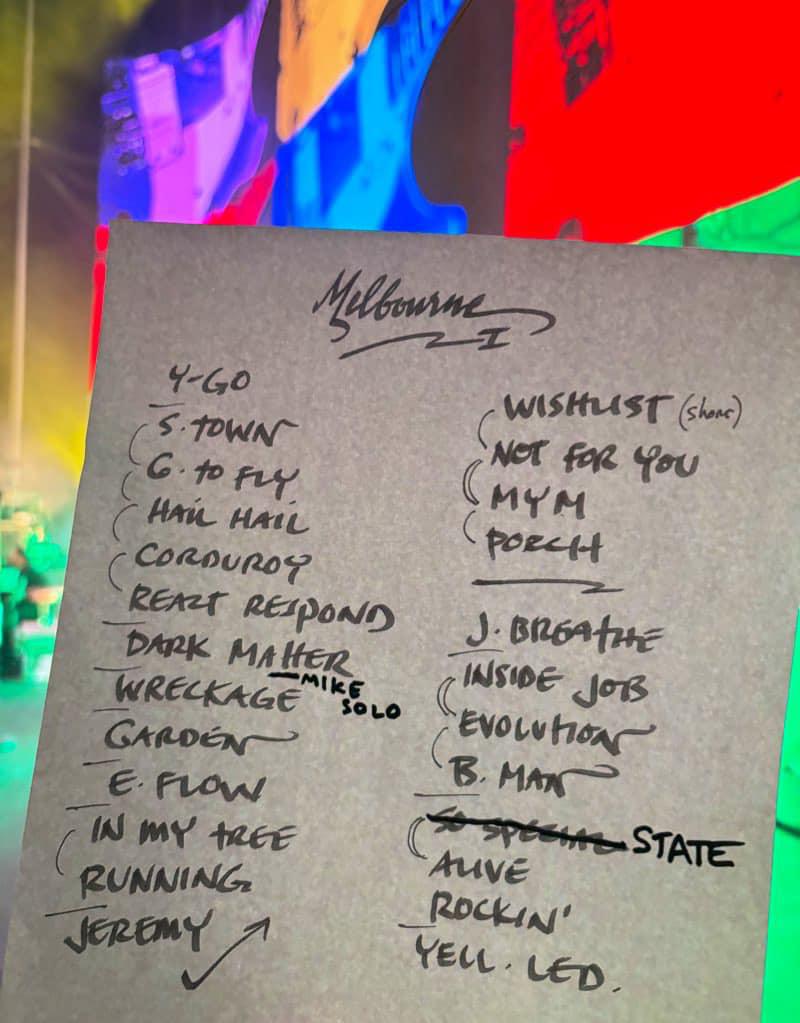 Melbourne
I
Y-GO
S. TOWN
G. TO FLY
HAIL HAIL
CORDUROY
REACT RESPOND
DARK MATTER
MIKE
SOLO
WRECKAGE
GARDEN
E. FLOW
IN MY TREE
RUNNING
JEREMY
WISHLIST (short)
NOT FOR YOU
MYM
PORCH
J. BREATHE
INSIDE JOB
EVOLUTION
B. MAN
SO SPECIAL STATE
ALIVE
ROCKIN'
YELL. LED.